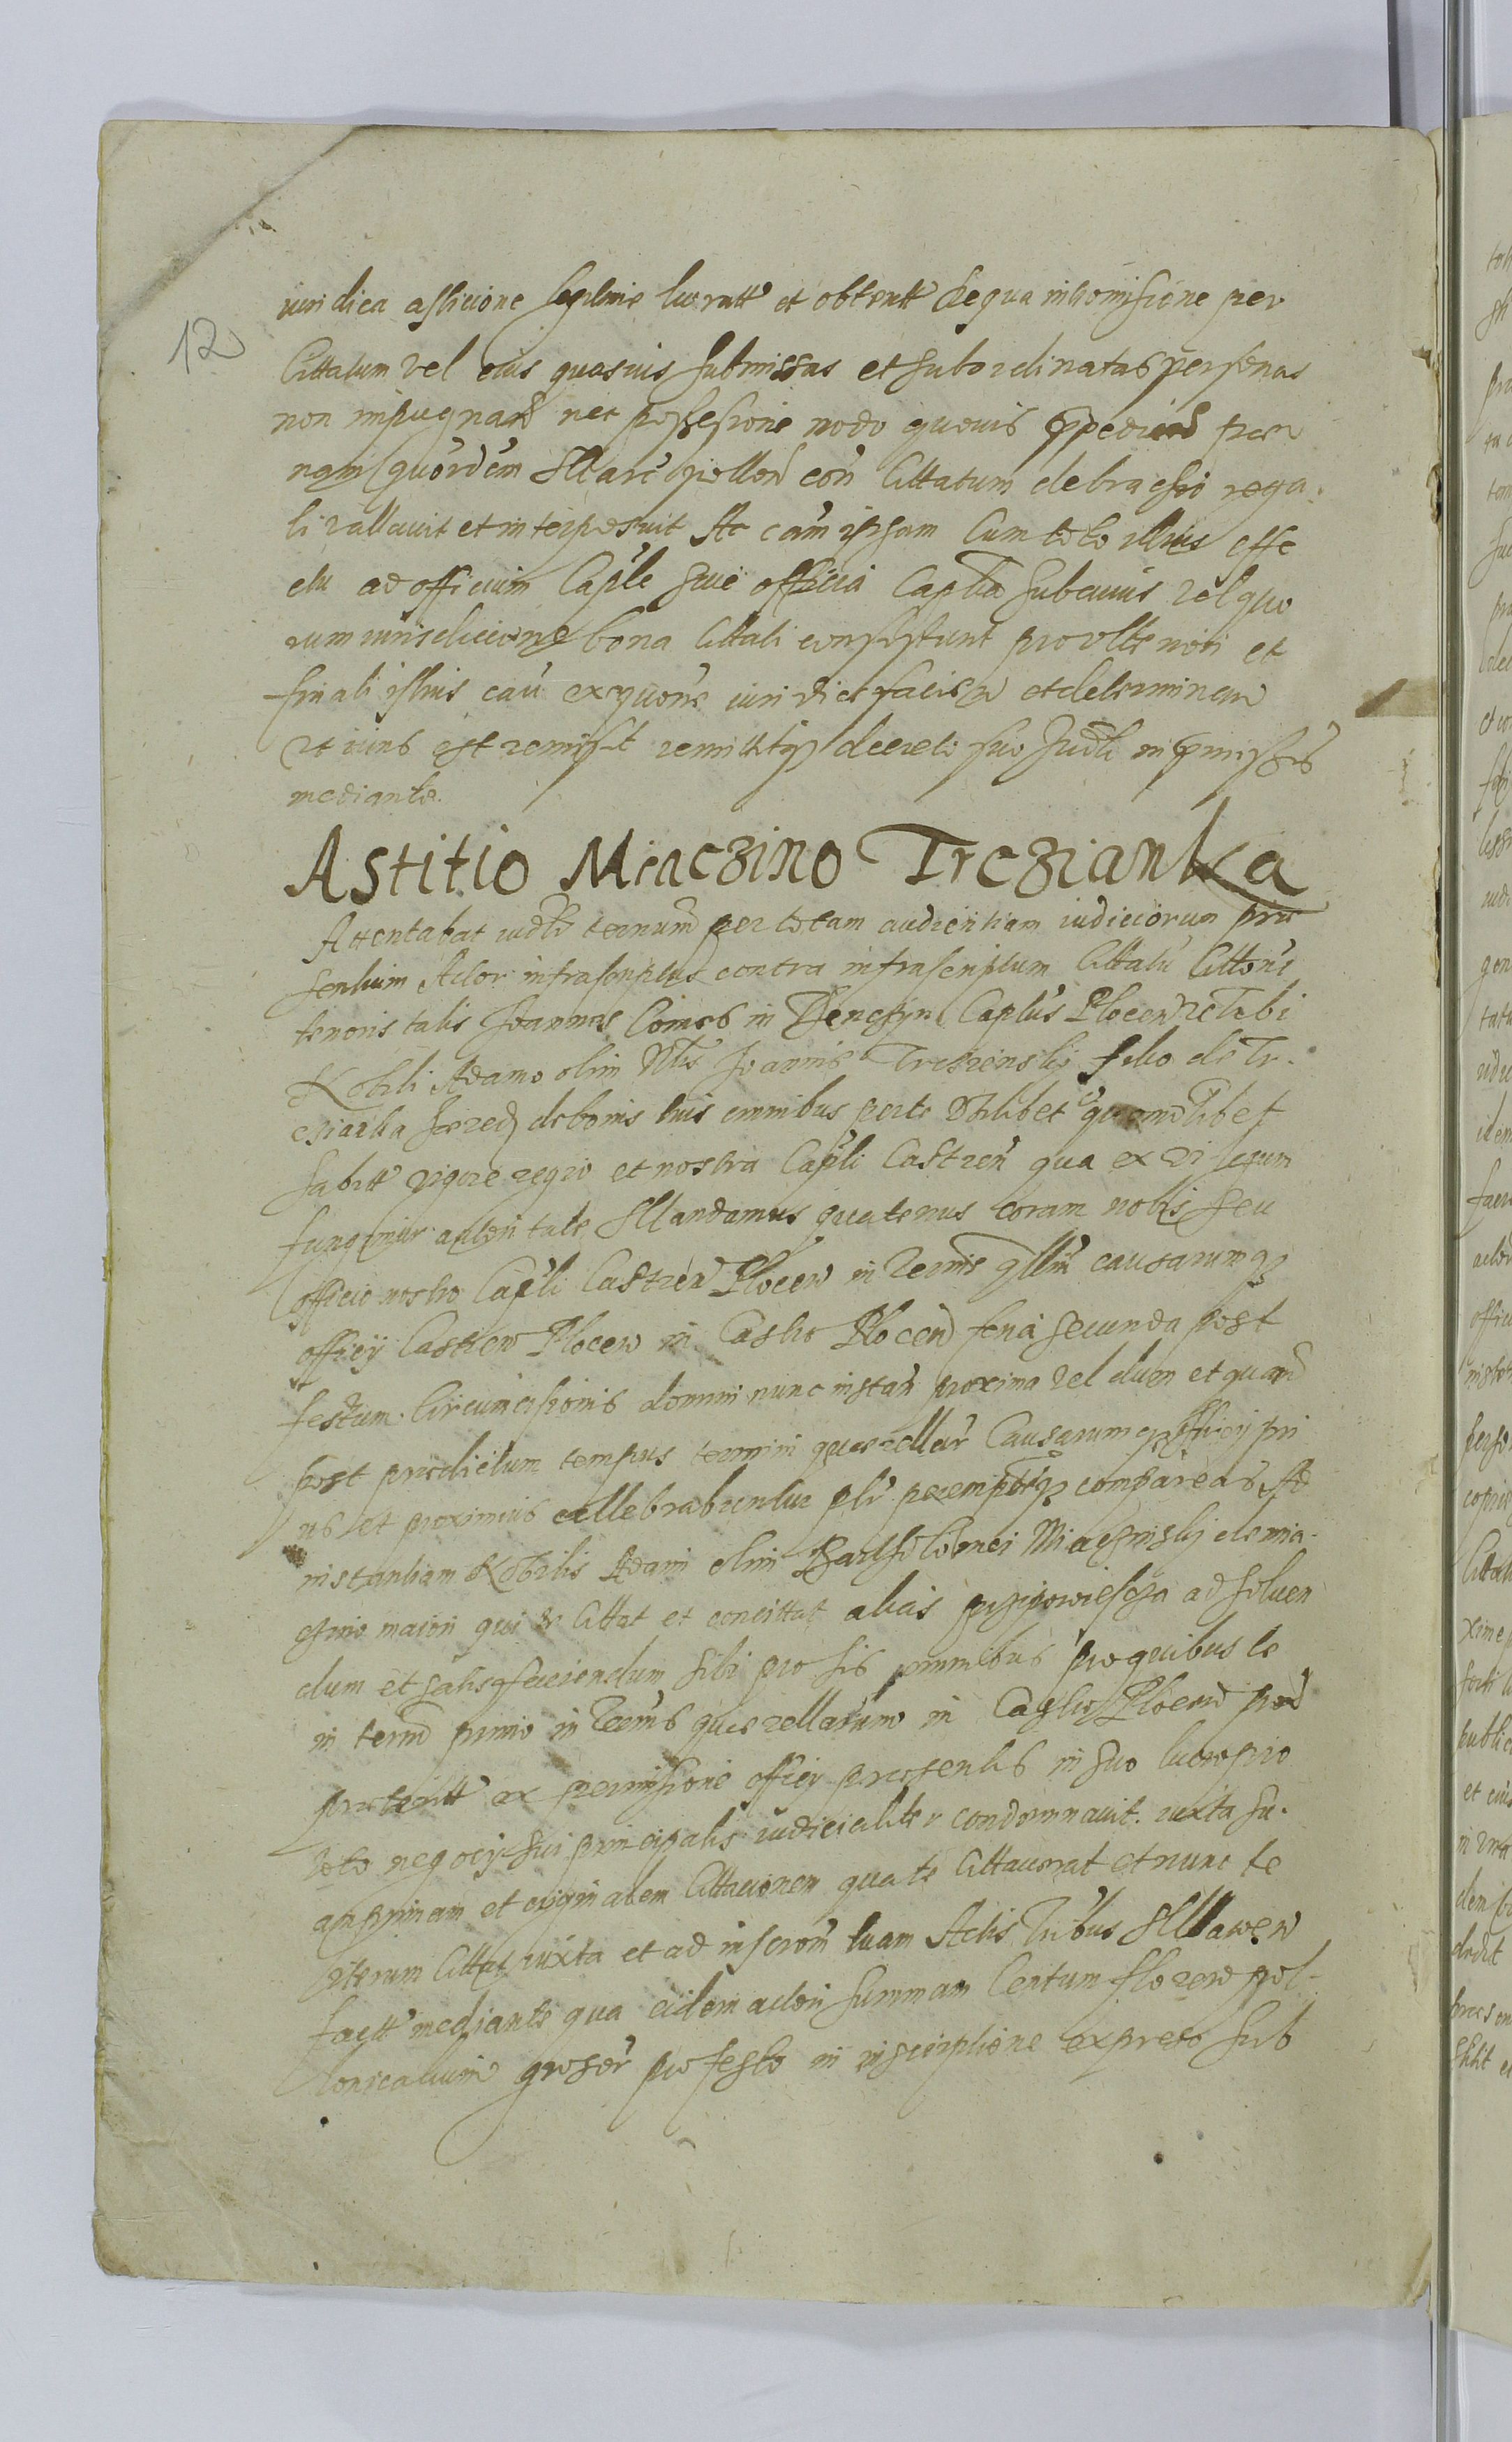 12
iuridica assicione lucratt et obtentt de qua intromissione per
Cittatum vel eius quasuis submissas et subordinatas personas
non impugnand nec possesione modo quouis
Marc pollon con Cittatum de brachio rega
li vallauit et interposuit Ac cam ipsam Cum toto illius effe
ctu ad officium Caplle siue officia Caplia sub cuius vel quo
rum iurisdicione bona Cittati consistunt pro vlteriori et
finali istius cau exequone iuridice faciend et determinan
vt iuris est remisit remittitq decreto suo Judli in pmissis
mediante
Astitio Miaczino Trczianka
Attentabat iudlr ternum per totam audientiam iudiciorum prae
sentium Actor infrascriptus contra infrascriptum Cittatu Cittonis
tenoris talis Joannes Comes in Caplus Plocen Tibi
Nobili Adamo olim Nlis Joannis Trczienskij filio de Tr
czianka haered de bonis tuis omnibus per te vbilibet quomodlibet
habitt vigore regio et nostra Capli Castren qua ex vi legum
fungimur autoritate Mandamus quatenus coram nobis seu
officio nostro Capli Castren Plocen in Termis qllar causarumq
officij Castren Plocen in Castro Plocen feria secunda post
festum Circumcisionis domini nunc instan proxima vel dum et quand
post praedictum tempus termini quaerellar Causarumq officij pri
us et proximius cellebrabuntur plr peremptieq compareas Ad
instantiam Nobilis Adami olim Bartholomei Miaczinskij de Mia
czino maiori qui te Cittat et concittat alias przipowiescza ad soluen
dum et satisfaciendum sibi pro his omnibus pro quibus te
in term primo in Termis quaerellarum in Castro Plocen
praeteritt ex permissione officij praesentis in suo lucro pro
toto negocij sui principalis iudicialiter condemnauit iuxta su
am primam et originalem Cittacionem qua te Cittauerat et nunc te
iterum Cittat iuxta et ad inscron tuam Actis Tribus Mlawen
factt mediante qua eidem actori summam Centum floren pol
lonicalium groser pro festo in inscriptione expresso sub